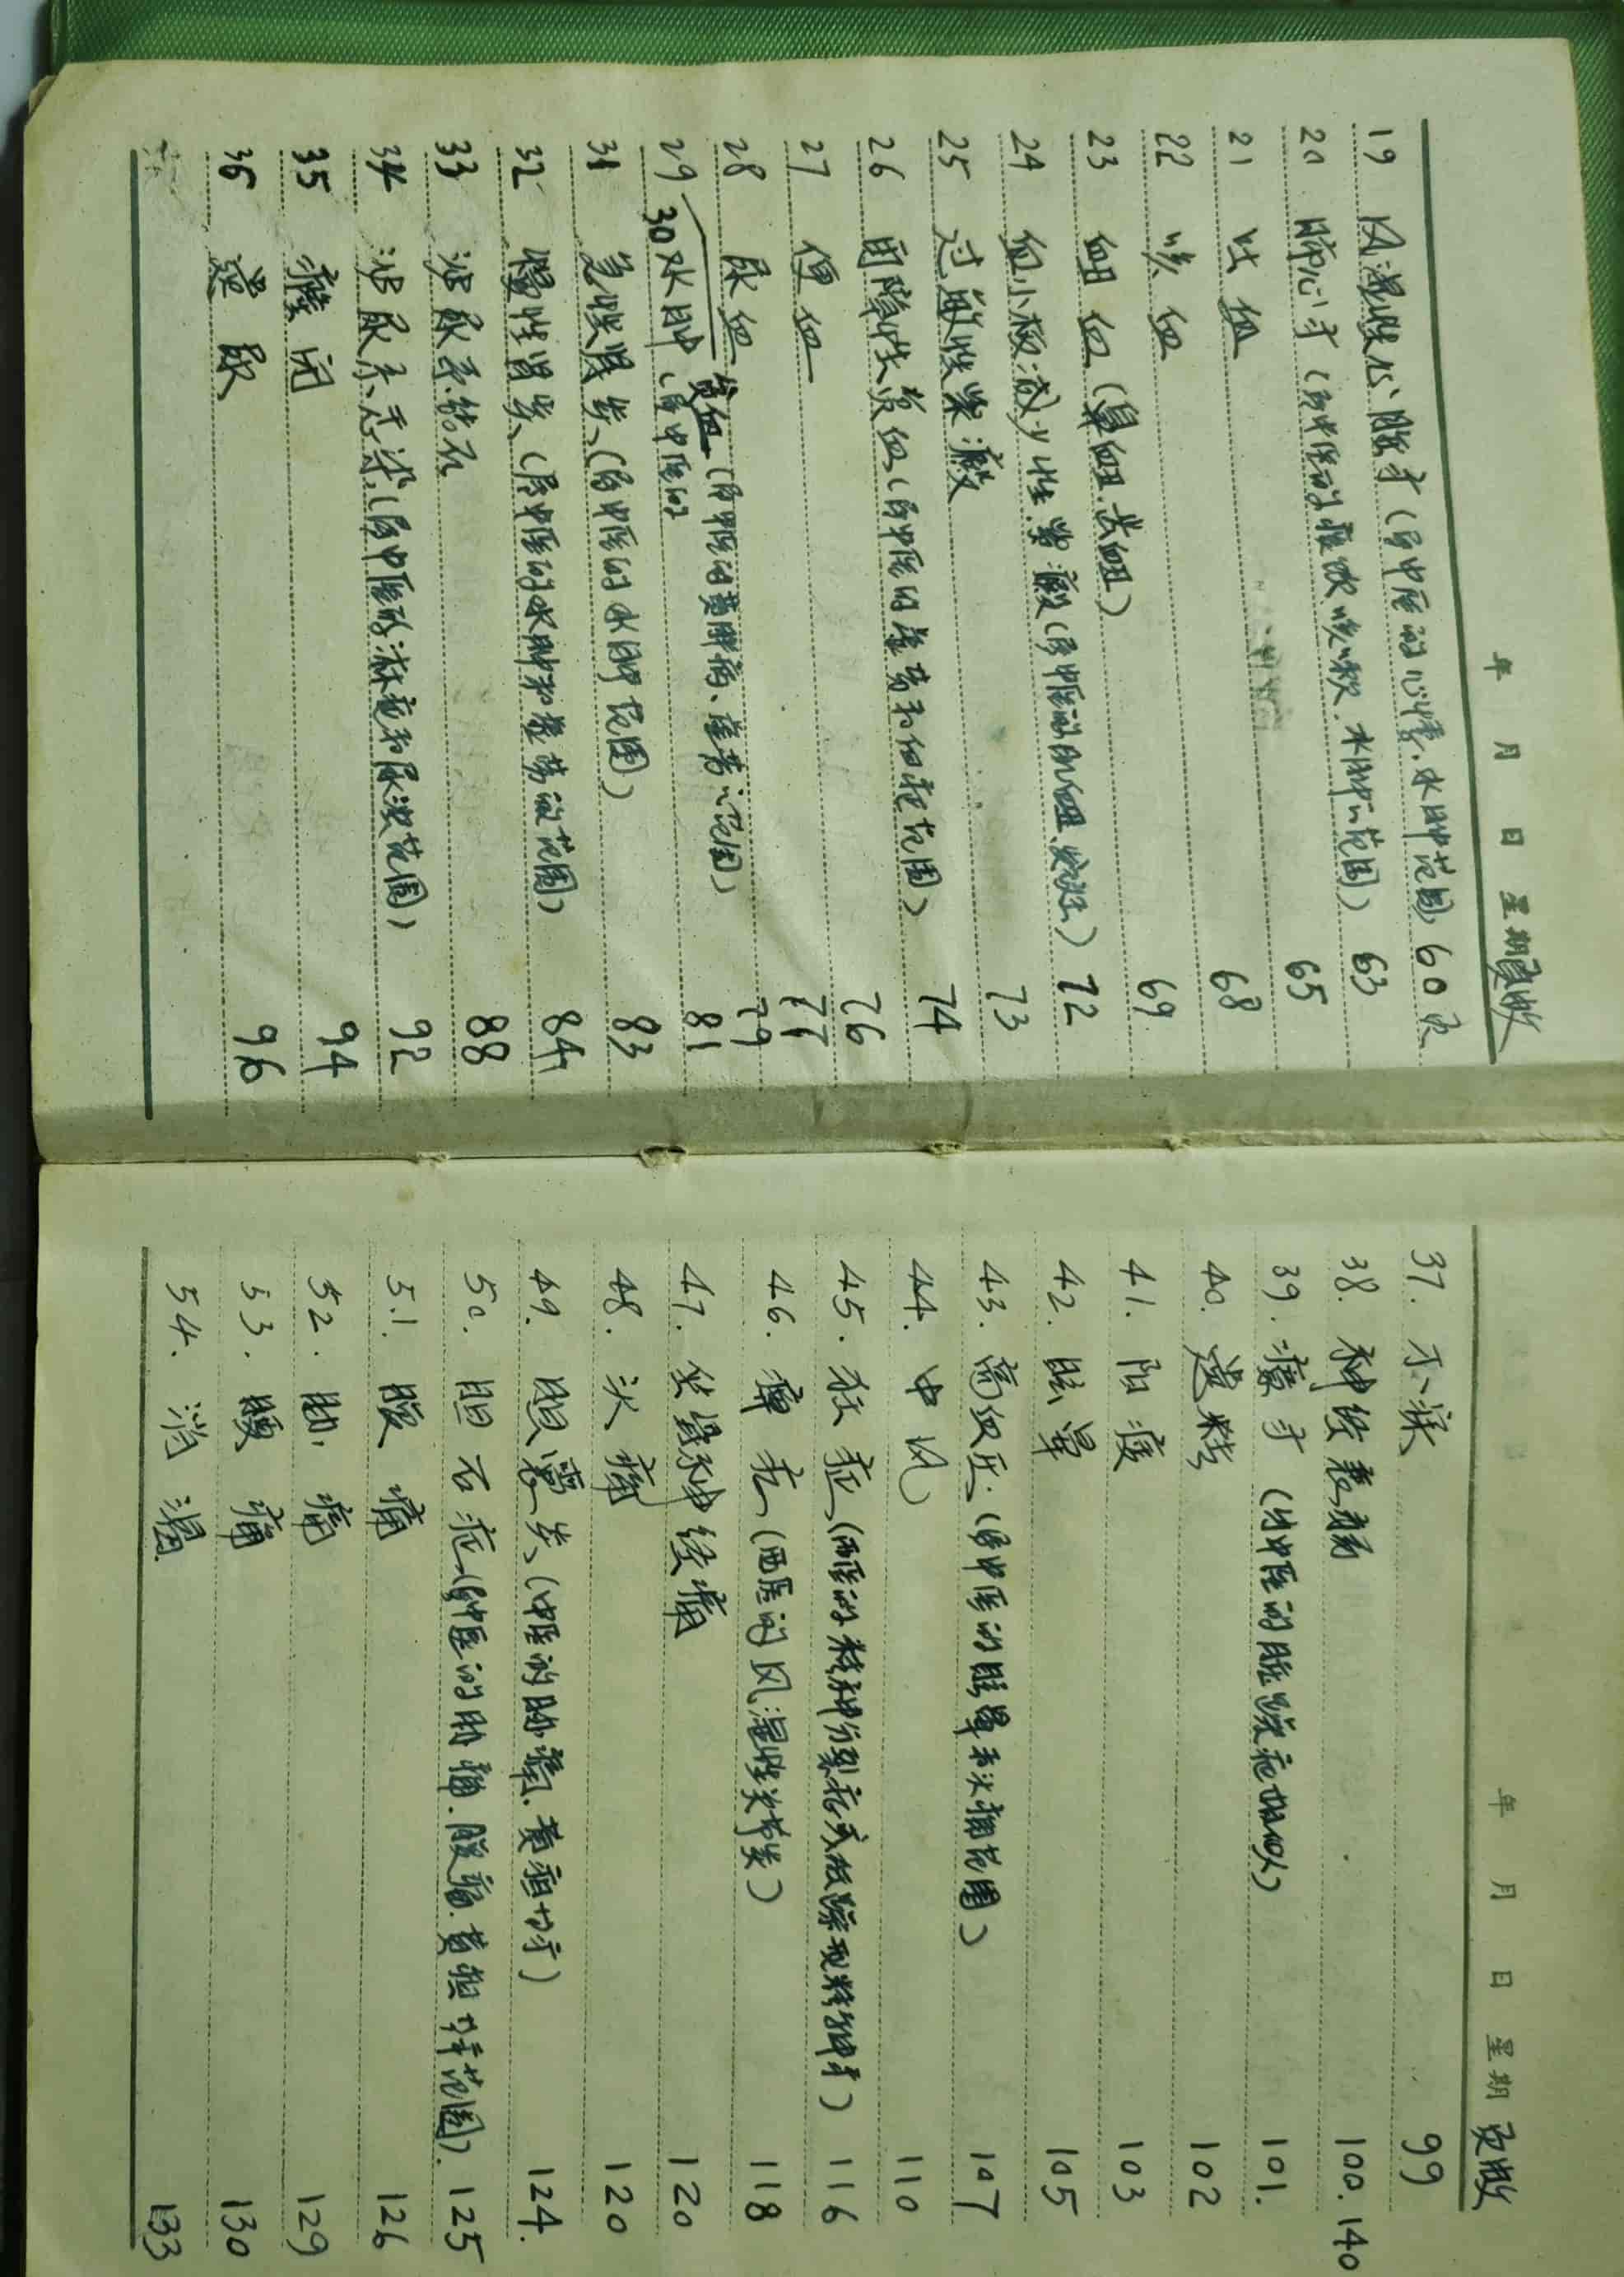 年 月 日 星期 页数
19 风湿性心脏病(属中医的心悸、水肿范围) 60页
20 肺心病(属中医的痰饮咳喘、水肿的范围) 63
21 吐血 65
22 咳血 68
23 衄血(鼻衄、齿衄) 69
24 血小板减少性紫癜(属中医的肌衄、发斑) 72
25 过敏性紫癜 73
26 再障性贫血(属中医的虚劳和血症范围) 74
27 便血 76
28 尿血 77
贫血(属中医的黄胖病、虚劳的范围) 79
29 30 水肿(属中医的 81
31 急性肾炎(属中医的水肿范围) 83
32 慢性肾炎(属中医的水肿和虚劳的范围) 84
33 泌尿系结石 88
34 泌尿系感染(属中医的淋症和尿浊范围) 92
35 癃闭 94
36 遗尿 96
年 月 日 星期 页数
37. 不寐 99
38. 神经衰弱 100. 140
39. 癔病(与中医的脏躁症相似) 101.
40. 遗精 102
41. 阳痿 103
42. 眩晕 105
43. 高血压(属中医的眩晕和头痛范围) 107
44. 中风 110
45. 狂症(西医的精神分裂症或狂躁型精神病) 116
46. 痹症(西医的风湿性关节炎) 118
47. 坐骨神经痛 120
48. 头痛 120
49. 胆囊炎(中医的胁痛、黄疸切病) 124.
50. 胆石症(属中医的胁痛、腹痛、黄疸病等范围). 125
51. 腹痛 126
52. 胁痛 129
53. 腰痛 130
54. 消渴 133